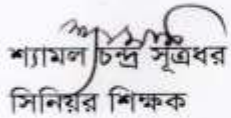 শ্যামল চন্দ্র সূত্রধর
সিনিয়র শিক্ষক